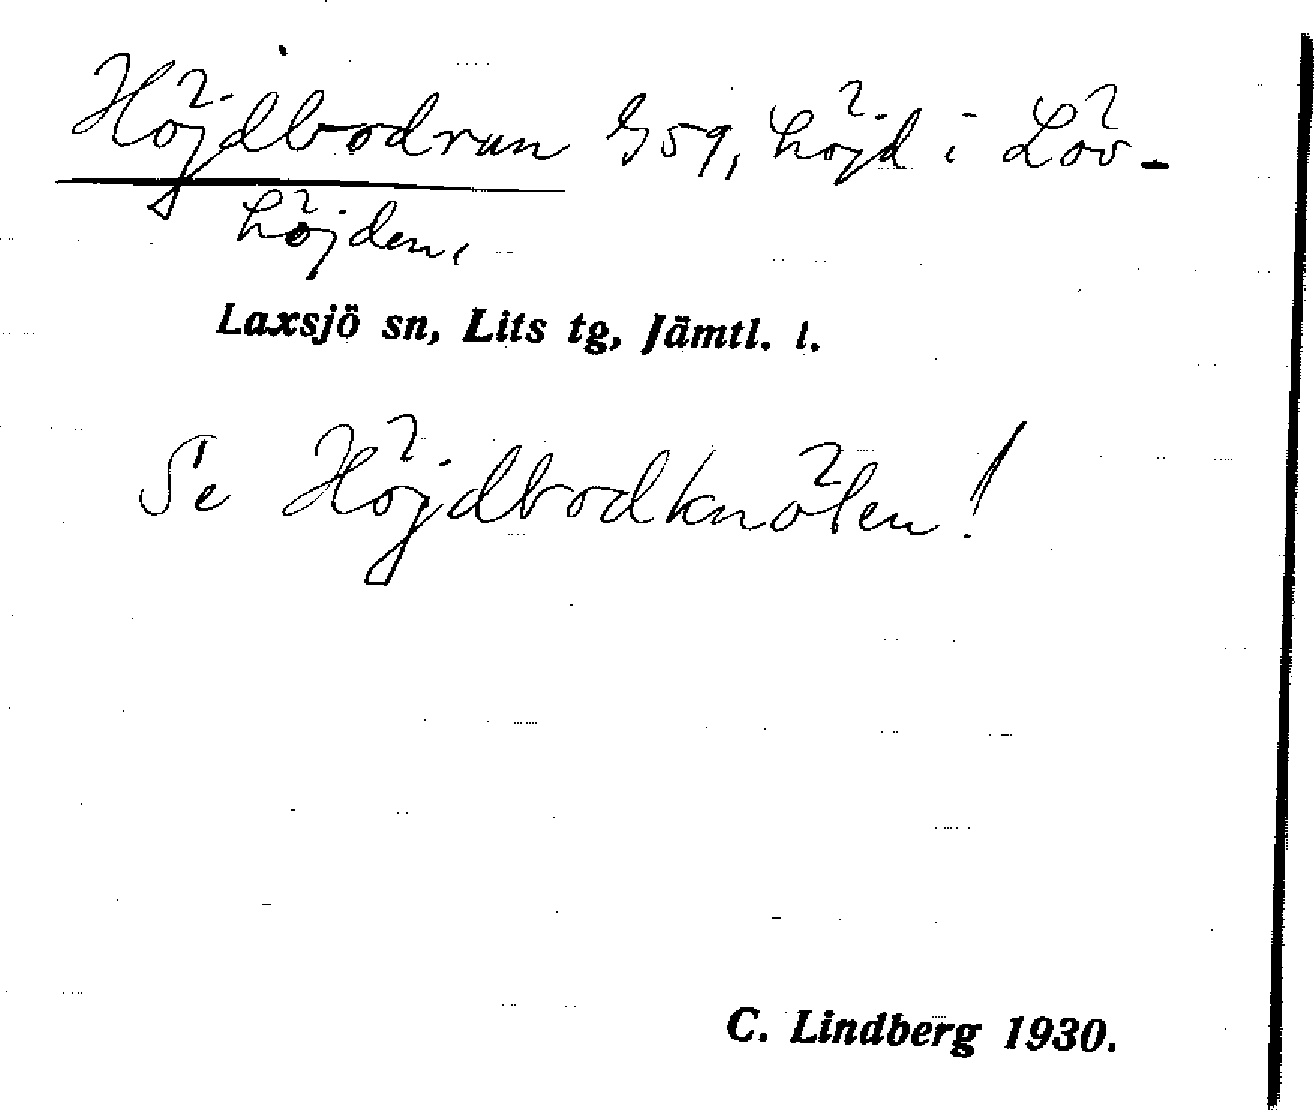 Höjdbodran G59, höjd i Löv-
höjden.
Laxsjö sn, Lits tg, Jämtl. l.
Se Höjdbodknölen!
C. Lindberg 1930.